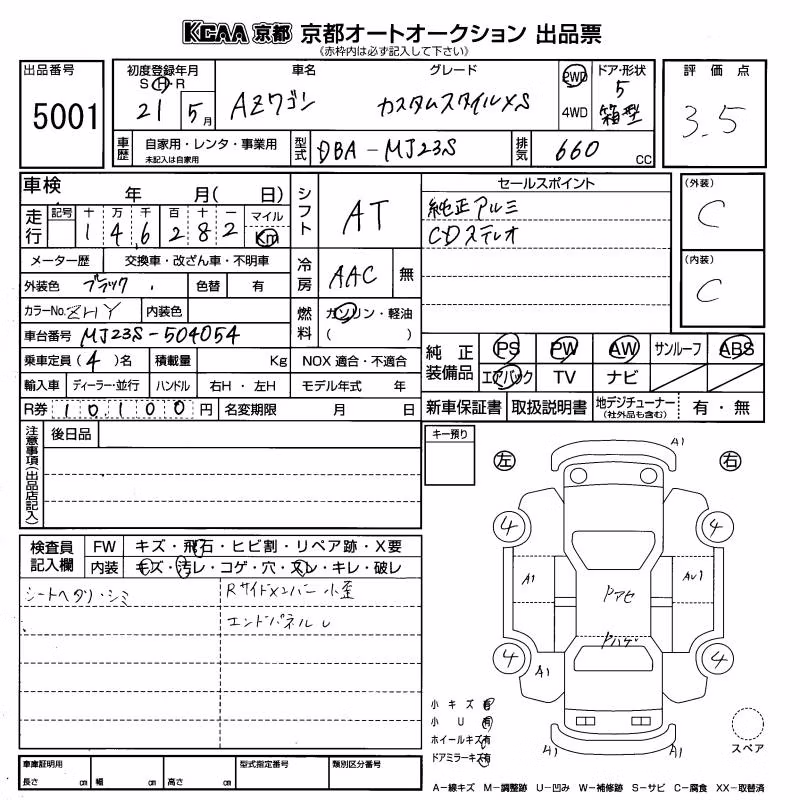 KCAA 京都 京都オートオークション 出品票
《赤枠内は必ず記入して下さい》
出品番号
5001
初度登録年月 車名 グレード
S H R
21 5月
AZワゴン カスタムスタイルXS
2WD
4WD
ドア・形状
5
箱型
評価点
3.5
車歴
自家用・レンタ・事業用
未記入は自家用
型式
DBA-MJ23S
排気
660 CC
車検 年 月( 日)
走行
記号 十 万 千 百 十 一 マイル
1 4 6 2 8 2 Km
シフト
AT
メーター歴 交換車・改ざん車・不明車
冷房
AAC 無
外装色 ブラック 色替 有
カラーNo. ZHY 内装色
燃料
ガソリン・軽油
( )
車台番号 MJ23S-504054
乗車定員( 4 )名 積載量 Kg NOX 適合・不適合
輸入車 ディーラー・並行 ハンドル 右H・左H モデル年式 年
R券 10,100 円 名変期限 月 日
セールスポイント
純正アルミ
CDステレオ
(外装)
C
(内装)
C
純正装備品
PS PW AW サンルーフ ABS
エアバック TV ナビ
新車保証書 取扱説明書 地デジチューナー(社外品も含む) 有・無
注意事項(出品店記入)
後日品
検査員記入欄
FW キズ・飛石・ヒビ割・リペア跡・X要
内装 キズ・汚レ・コゲ・穴・スレ・キレ・破レ
シートヘタリ・シミ
Rサイドメンバー小歪
エンドパネルU
キー預り
左 右
A1
4 4
A1 AU1
Pアセ
Pハゲ
4 4
A1
A1 A1
小キズ有
小U有
ホイールキズ有
ドアミラーキズ有
スペア
車庫証明用 型式指定番号 類別区分番号
長さ cm 幅 cm 高さ cm
A-線キズ M-調整跡 U-凹み W-補修跡 S-サビ C-腐食 XX-取替済